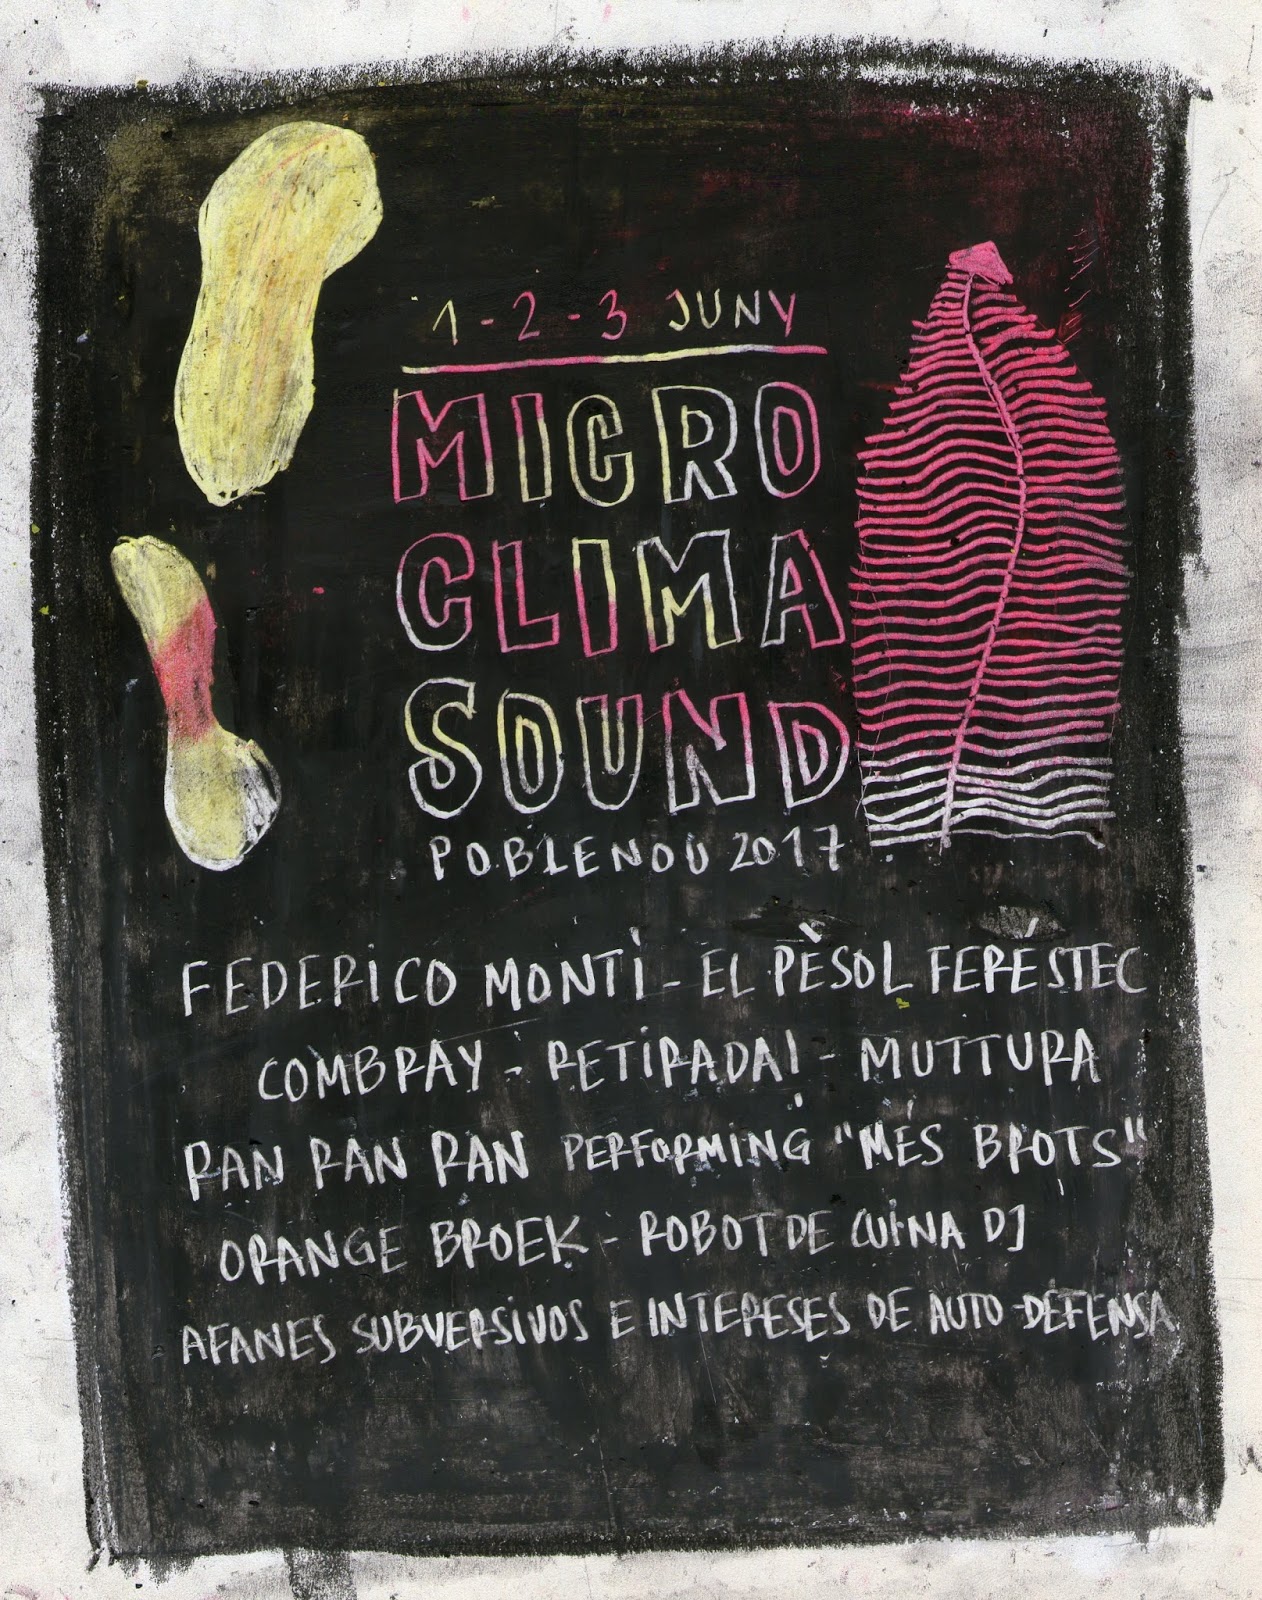 1-2-3 JUNY
MICRO
CLIMA
SOUND
POBLENOU 2017
FEDERICO MONTI - EL PÈSOL FERÉSTEC
COMBRAY - RETIRADA! - MUTTURA
RAN RAN RAN PERFORMING "MÉS BROTS"
ORANGE BROEK - ROBOT DE CUINA DJ
AFANES SUBVERSIVOS E INTERESES DE AUTO-DEFENSA